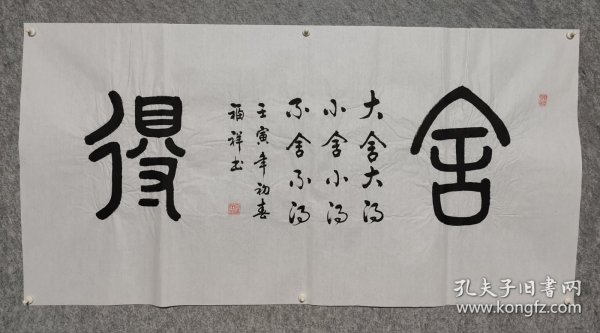 舍
大舍大得
小舍小得
不舍不得
壬寅年初春
福祥书
得
孔夫子旧书网
www.kongfz.com